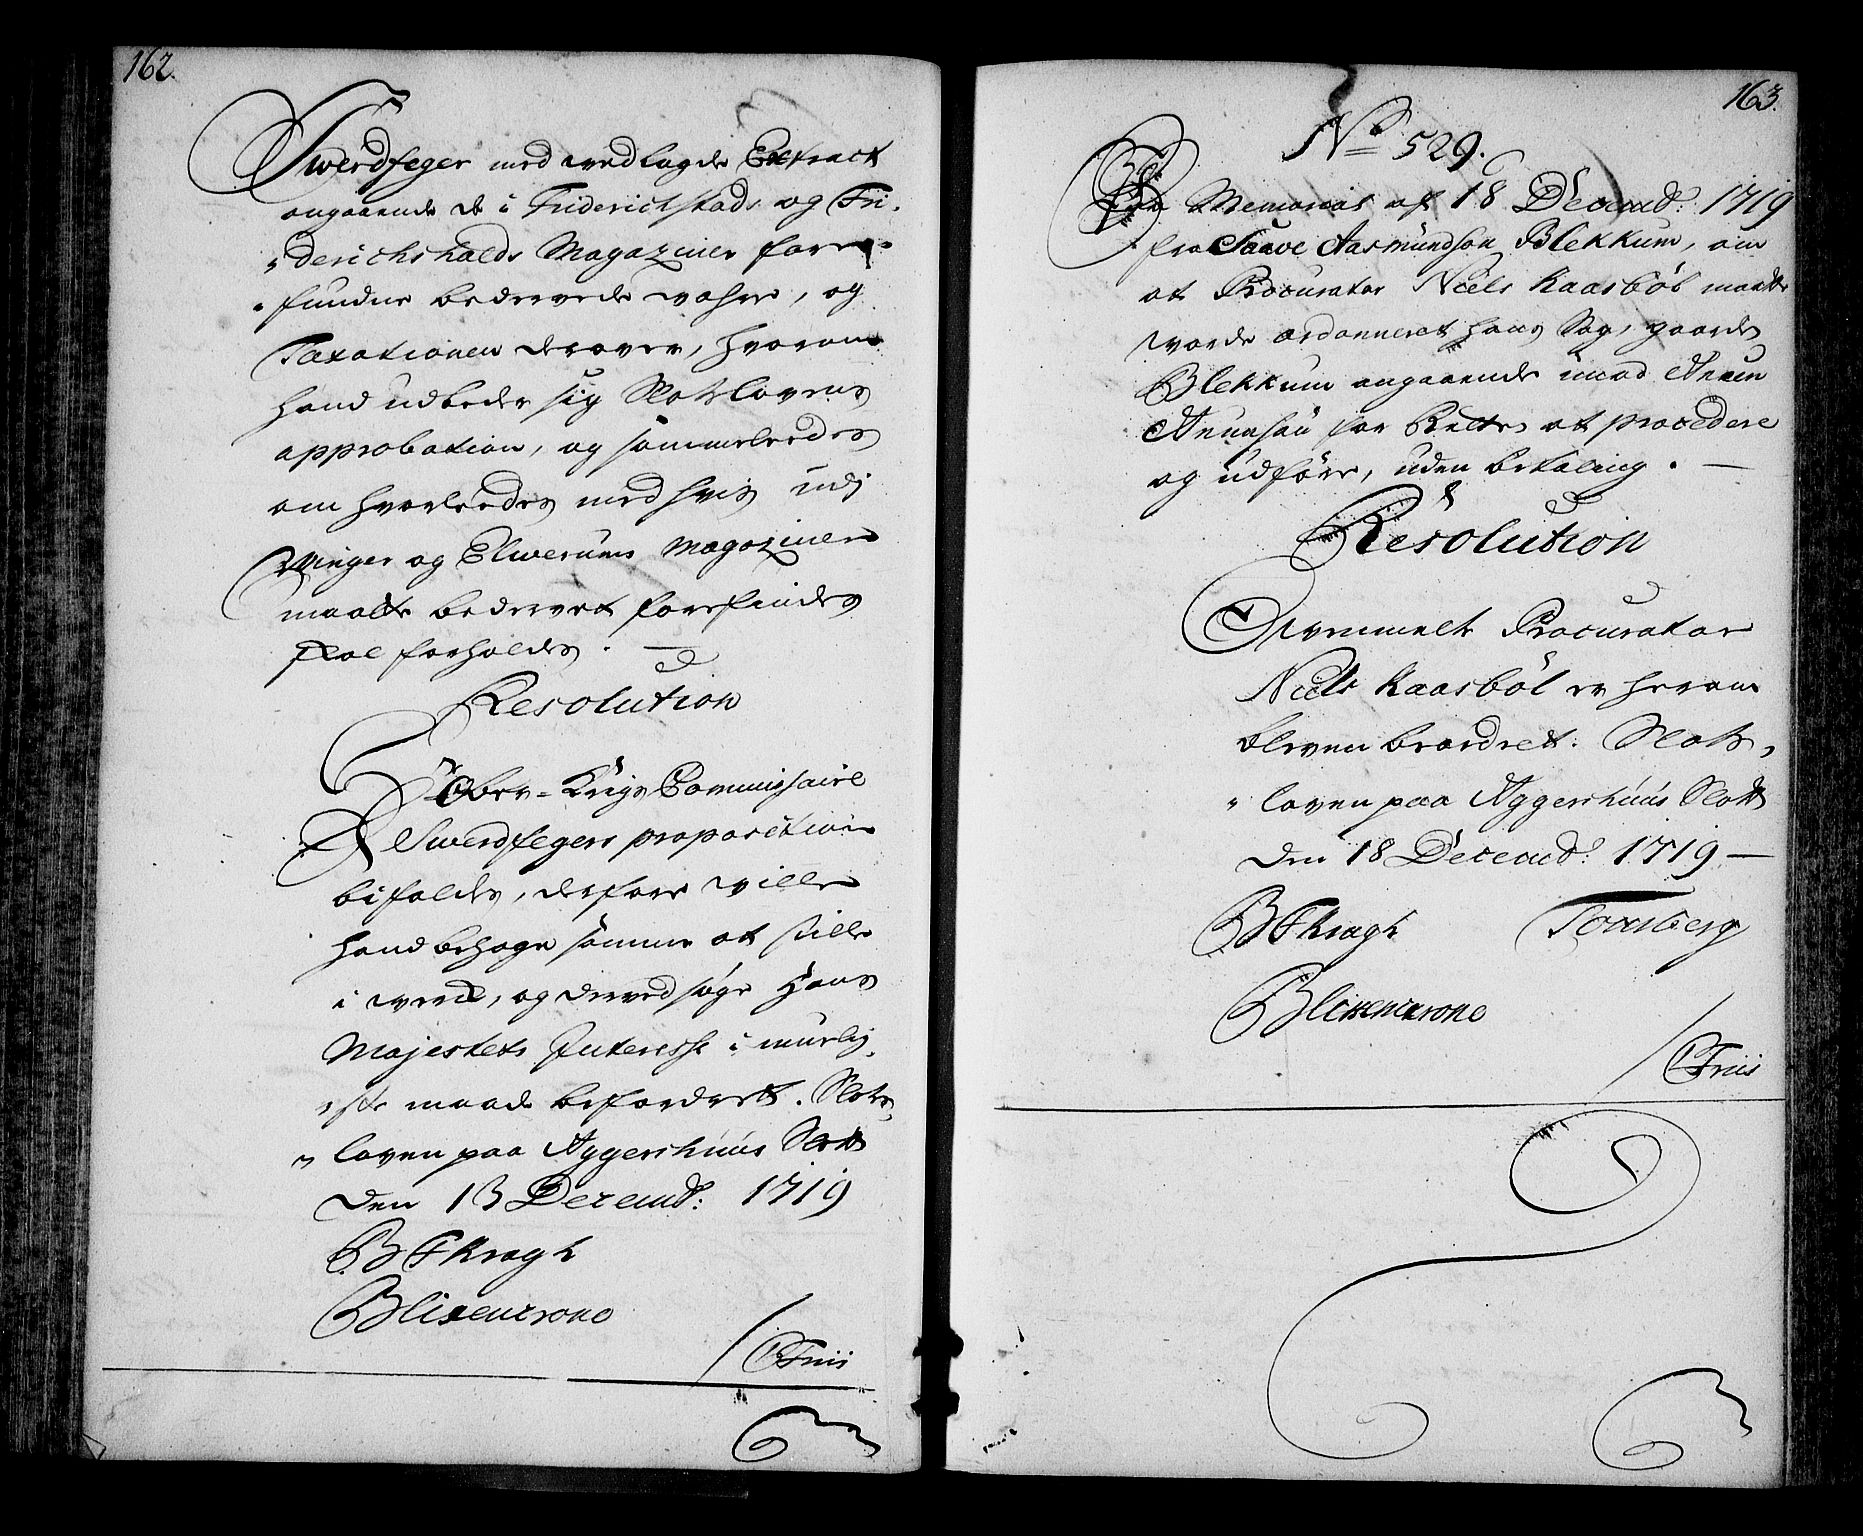 162.
Swerdfeger med wedlagde Extract
angaaende de i Friderichstads og Fri-
derichshalds Magaziner forre-
fundne bedervede wahre, og
Taxationen derover, hvorom
hand udbeder sig Slotslovens
approbation, og sammeleedes
om hvorleedes med hvis udj
Winger og Elwerums Magaziner
maatte bedervet forefindes
skal forholdes. —
Resolution
Hr Ober-Krigs Commissaire
Swerdfegers proposition
bifaldes, derfore wille
hand behage samme at stille
i werck, og derved søge Hans
Majestets Interesse i muelig-
ste maade befordret. Slots-
loven paa Aggershuus Slott
Den 13 Decemb: 1719
B F Kragh
Blixencrone
/ Friis
163.
No 529.
Memorial af 18 Decemb: 1719
fra Taave Aasmundson Blekkum, om
at Procurator Niels Kaasbøl maatte
worde ordonneret hans Sag, gaarden
Blekkum angaaende imod Anun
Anunsøn for Rette at procedere
og udføre, uden betaling. —
Resolution
Bemmelte Procurator
Niels Kaasbøl er herom
bleven beordret. Slots-
loven paa Aggershuus Slott
Den 18 Decemb: 1719 —
B F Kragh Tonsberg
Blixencrone
/ Friis